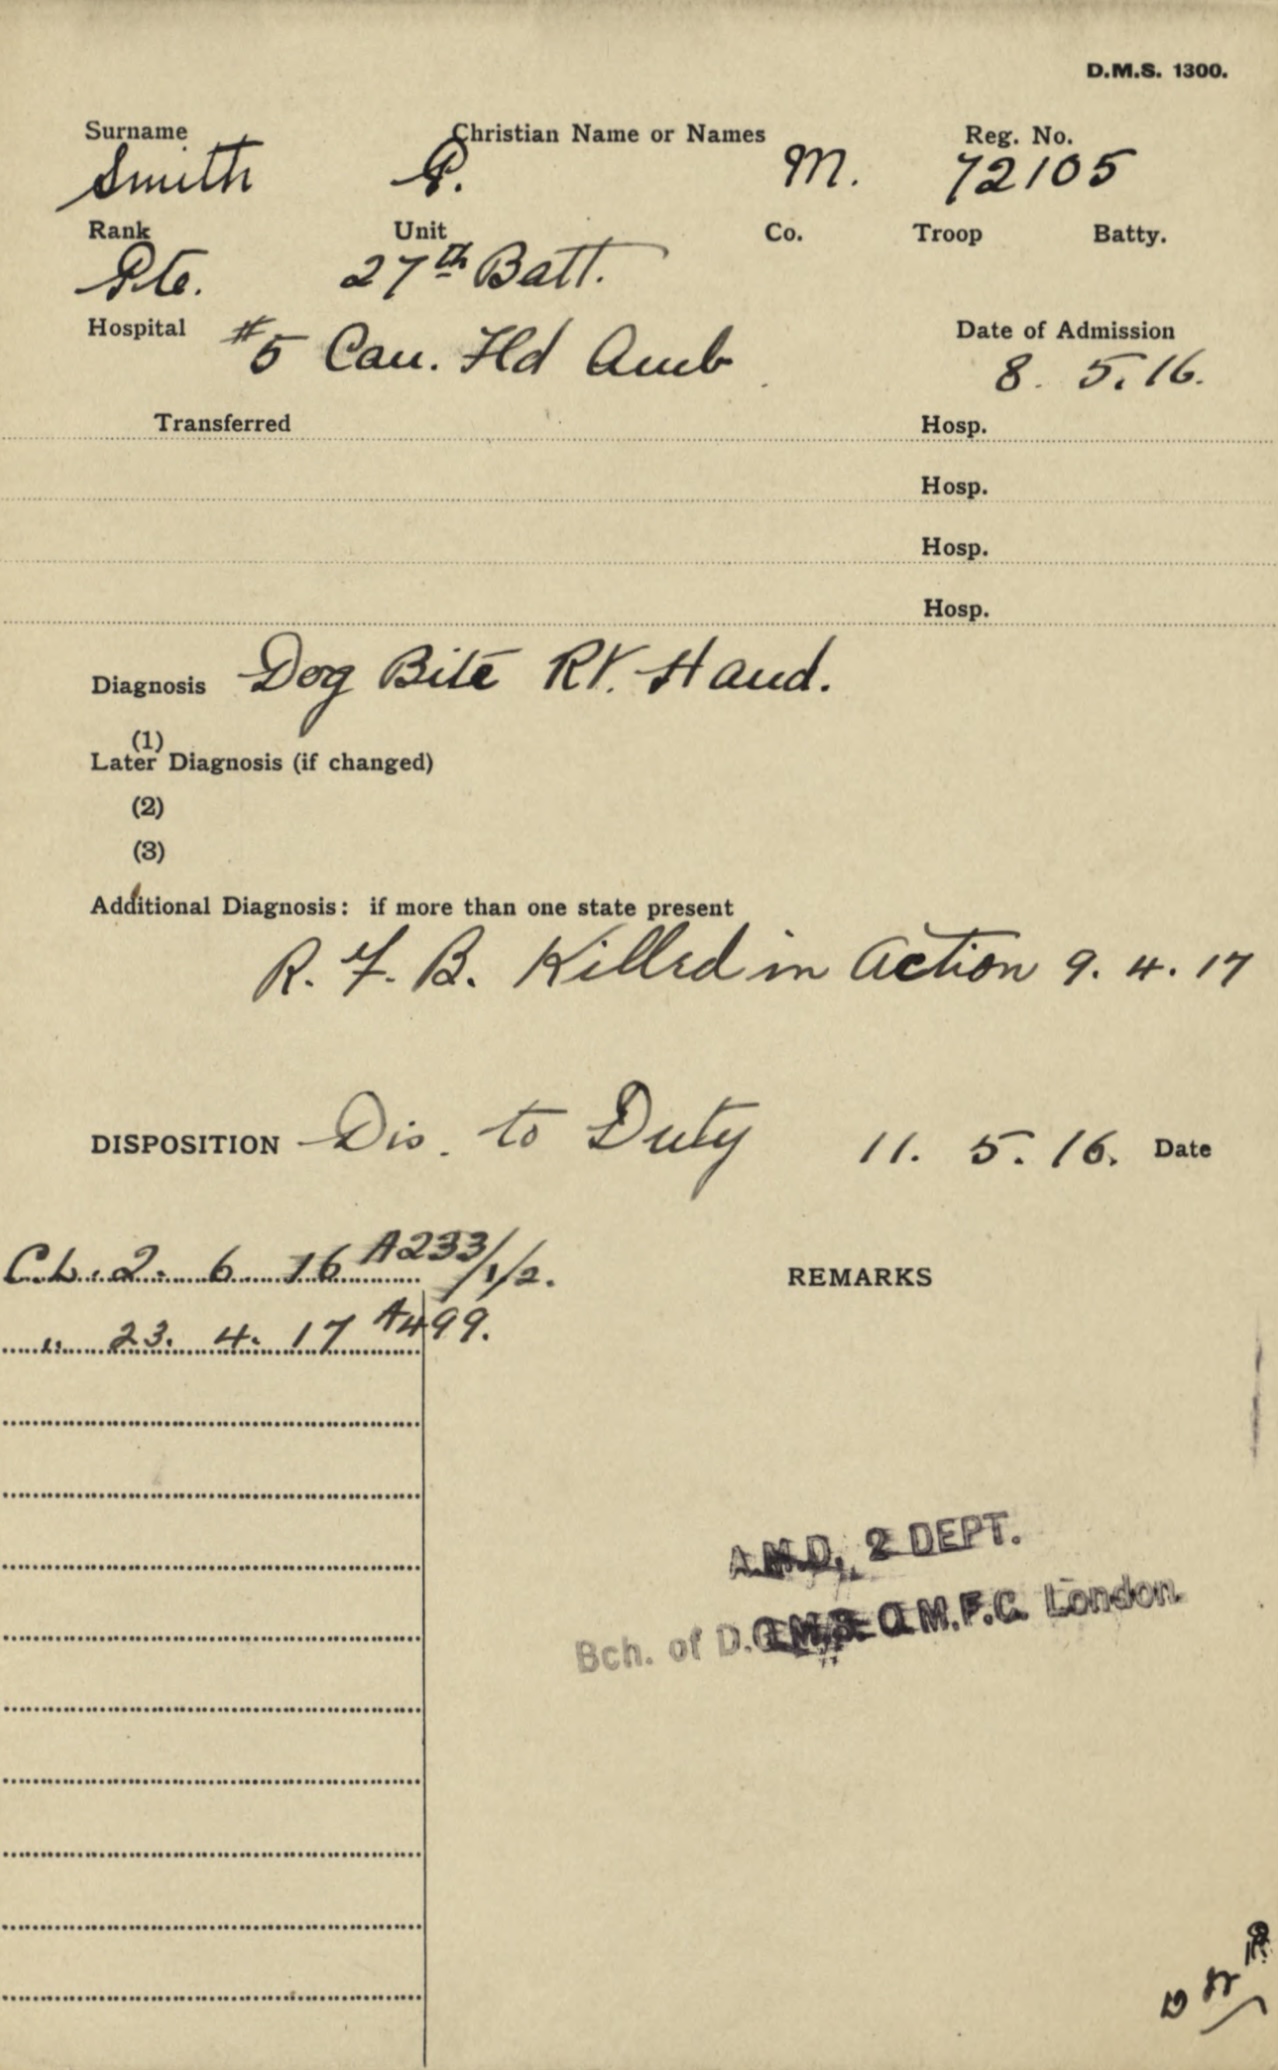 D.M.S. 1300.
Surname Christian Name or Names Reg. No.
Smith P. M. 72105
Rank Unit Co. Troop Batty.
Pte. 27th Batt.
Hospital #5 Can. Fld Amb Date of Admission
8. 5. 16.
Transferred Hosp.
Hosp.
Hosp.
Hosp.
Diagnosis Dog Bite Rt. Hand.
(1)
Later Diagnosis (if changed)
(2)
(3)
Additional Diagnosis: if more than one state present
R. F. B. Killed in Action 9. 4. 17
DISPOSITION Dis. to Duty 11. 5. 16. Date
C.L. 2. 6. 16 A233/1/2.
REMARKS
" 23. 4. 17 A499.
A.M.D. 2 DEPT.
Bch. of D.G.M.S. O.M.F.C. London